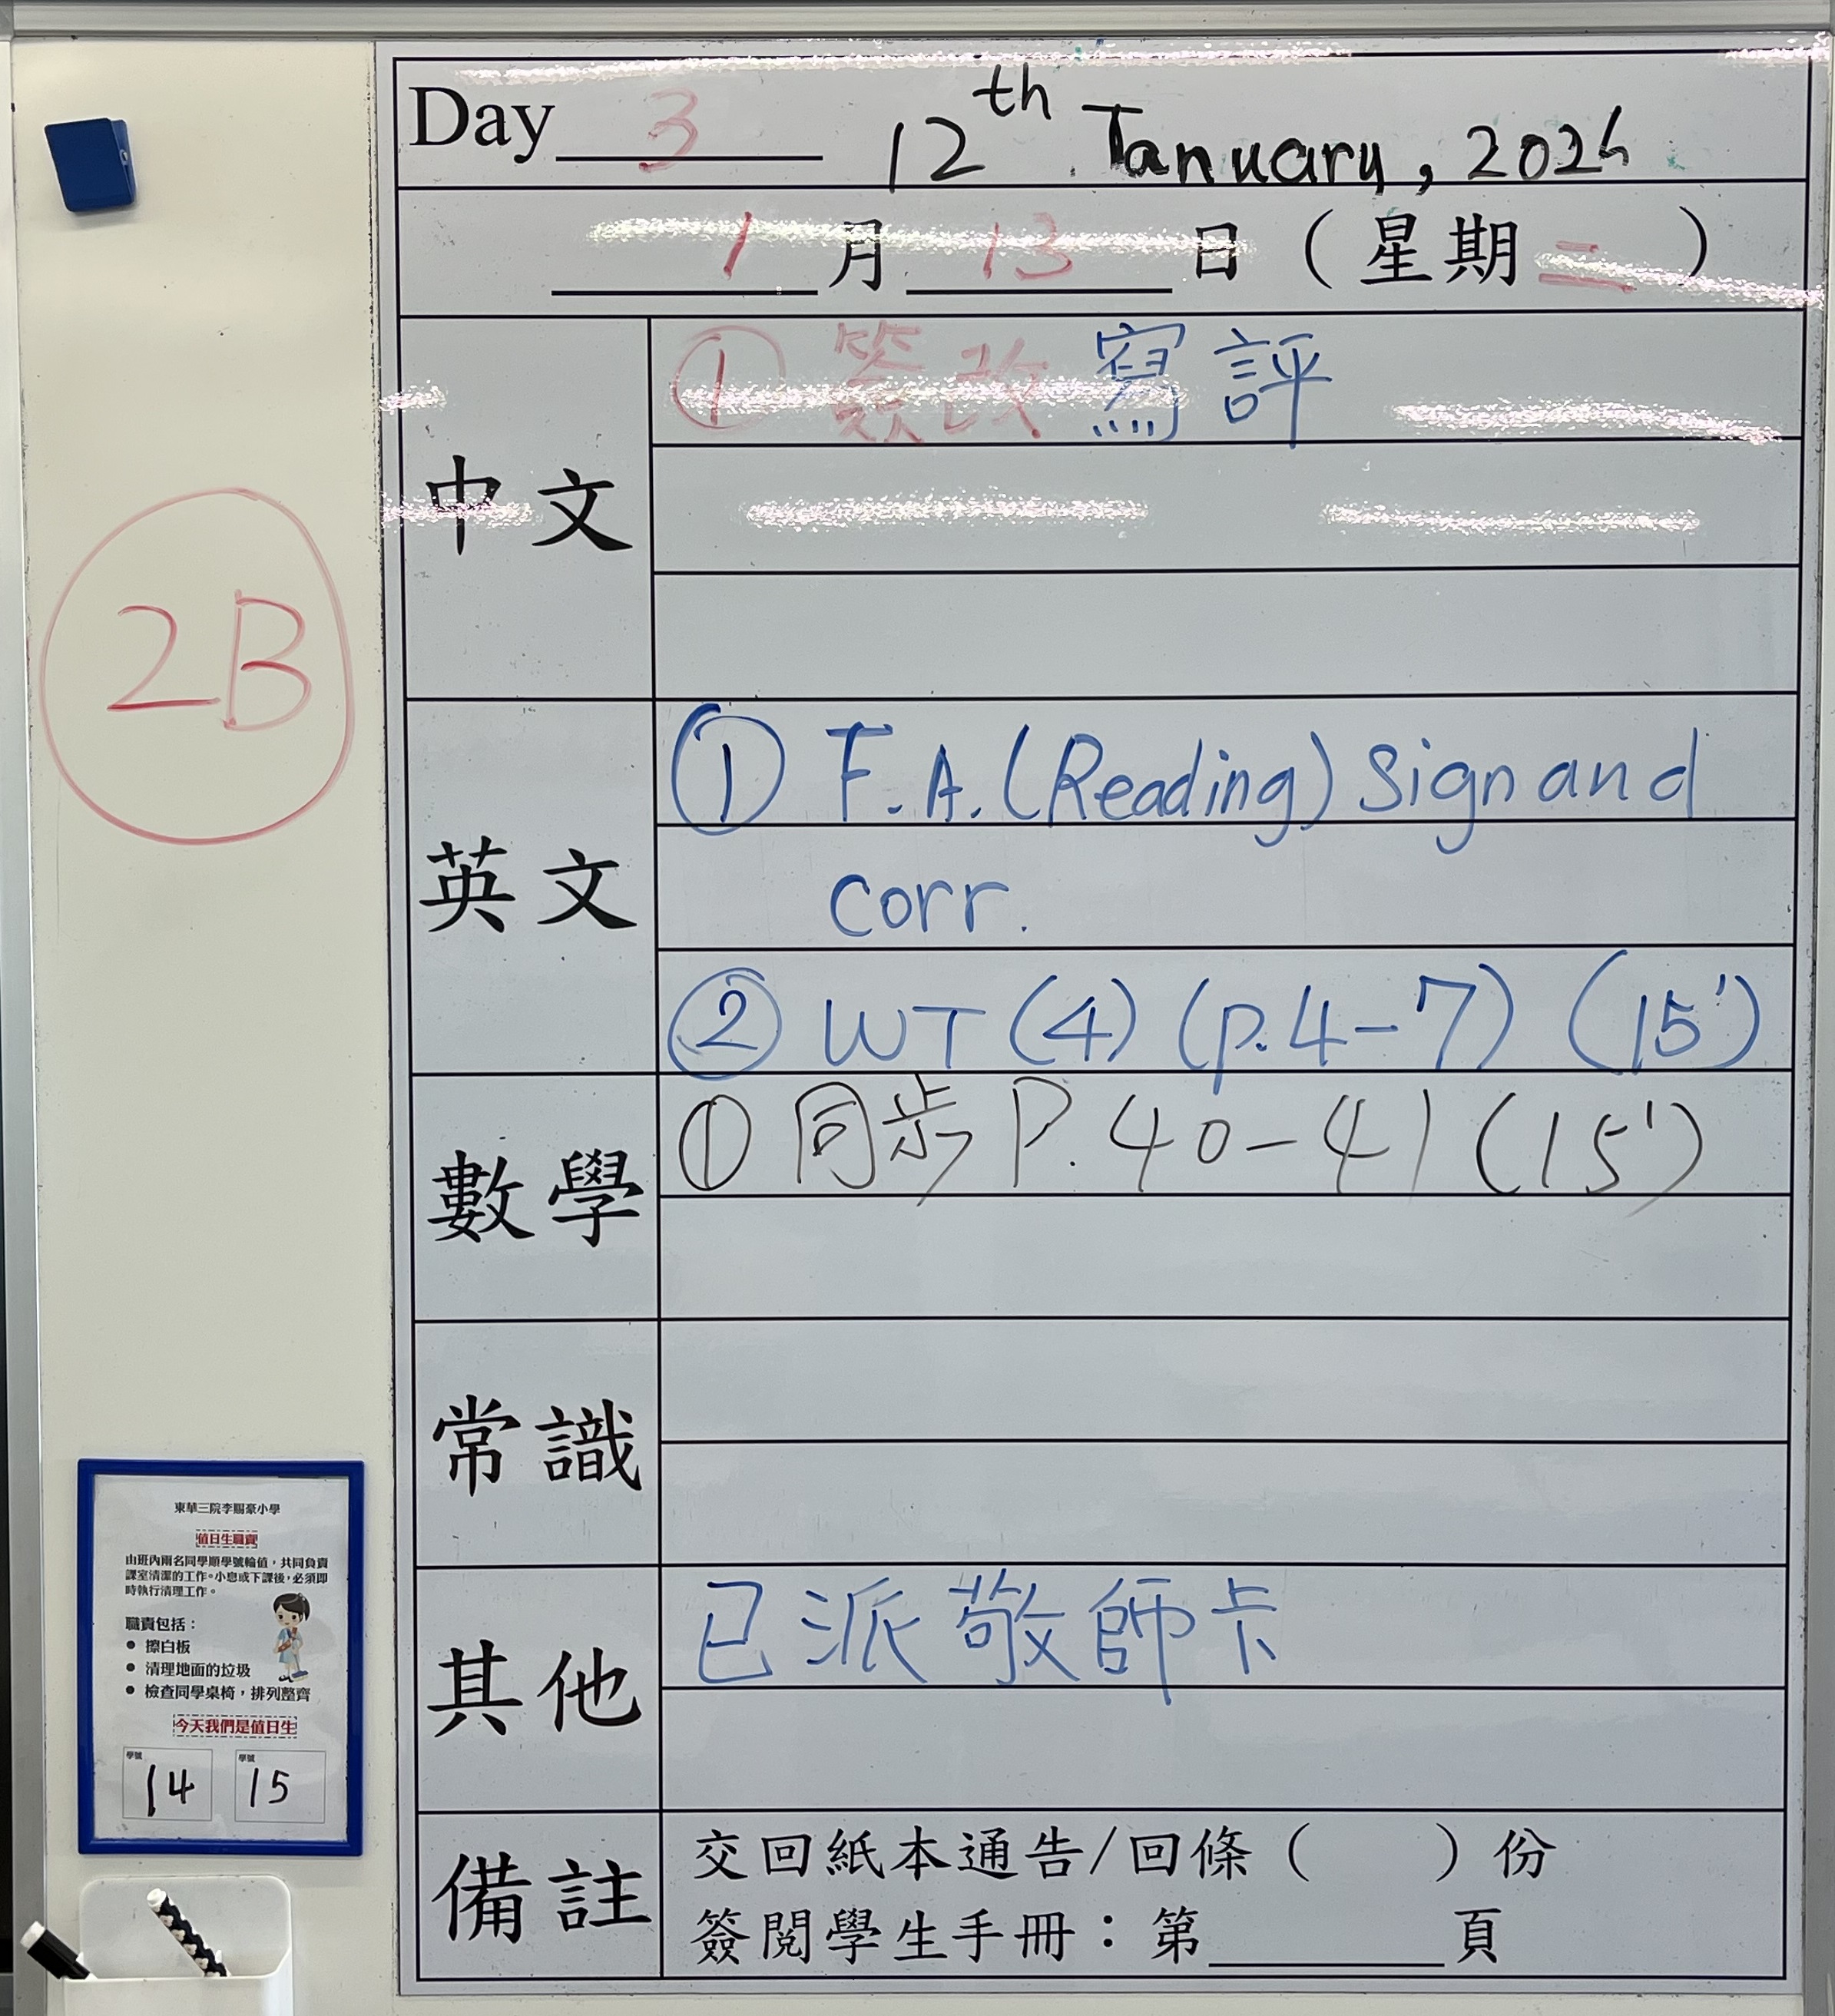 Day 3 12th January, 2026
1月13日（星期二）
2B
中文
① 簽改寫評
英文
① F.A.(Reading) Sign and
corr.
② WT (4) (p.4-7) (15')
數學
① 同步 P.40-41 (15')
常識
其他
已派敬師卡
備註
交回紙本通告/回條（ ）份
簽閱學生手冊：第 頁
東華三院李賜豪小學
值日生職責
由班內兩名同學順學號輪值，共同負責
課室清潔的工作。小息或下課後，必須即
時執行清理工作。
職責包括：
● 擦白板
● 清理地面的垃圾
● 檢查同學桌椅，排列整齊
今天我們是值日生
學號 學號
14 15